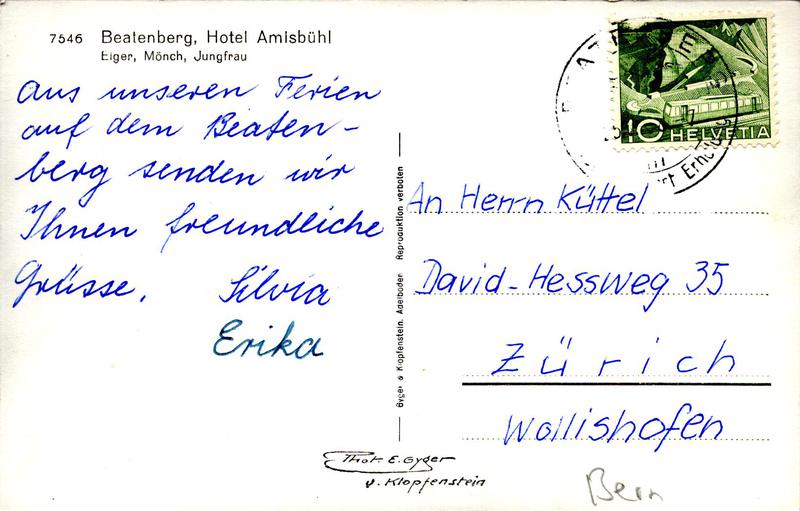 7546 Beatenberg, Hotel Amisbühl
Eiger, Mönch, Jungfrau
Aus unseren Ferien
auf dem Beaten-
berg senden wir
Ihnen freundliche
Grüsse. Silvia
Erika
Gyger & Klopfenstein, Adelboden Reproduktion verboten
10 HELVETIA
An Herrn Küttel
David-Hessweg 35
Zürich
Wollishofen
Phot. E. Gyger
u. Klopfenstein
Bern